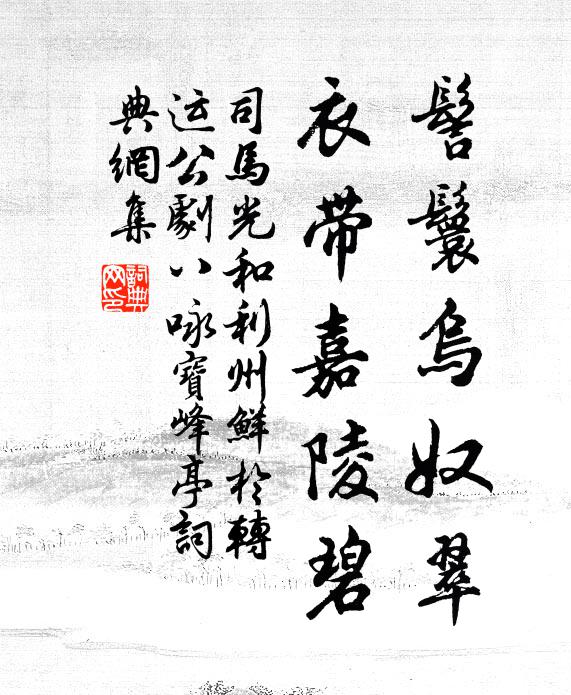 髻鬟烏奴翠
衣帶嘉陵碧
司馬光和利州鮮於轉
运公劇八咏寶峰亭詞
典網集
詞典網印